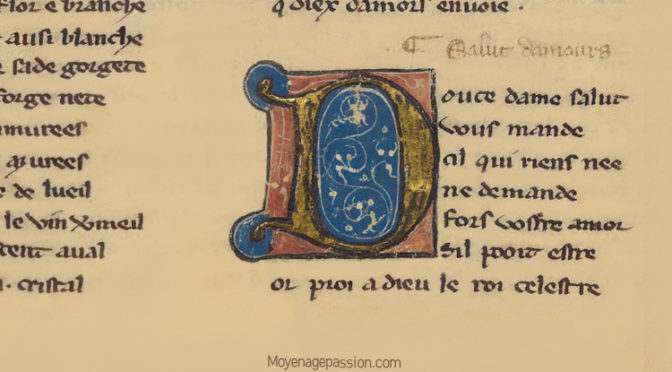 flor e branche
ausi blanche
sade gorgete
forge nete
murees
azurees
e de lueil
le vin vmeil
dent aual
cristal
q diex damors enuoie ·
¶ Salut damours
Douce dame salut
Vous mande
Cil qui riens nee
ne demande
Fors vostre amor
Sil pooit estre
Or proi a dieu le roi celestre
Moyenagepassion.com